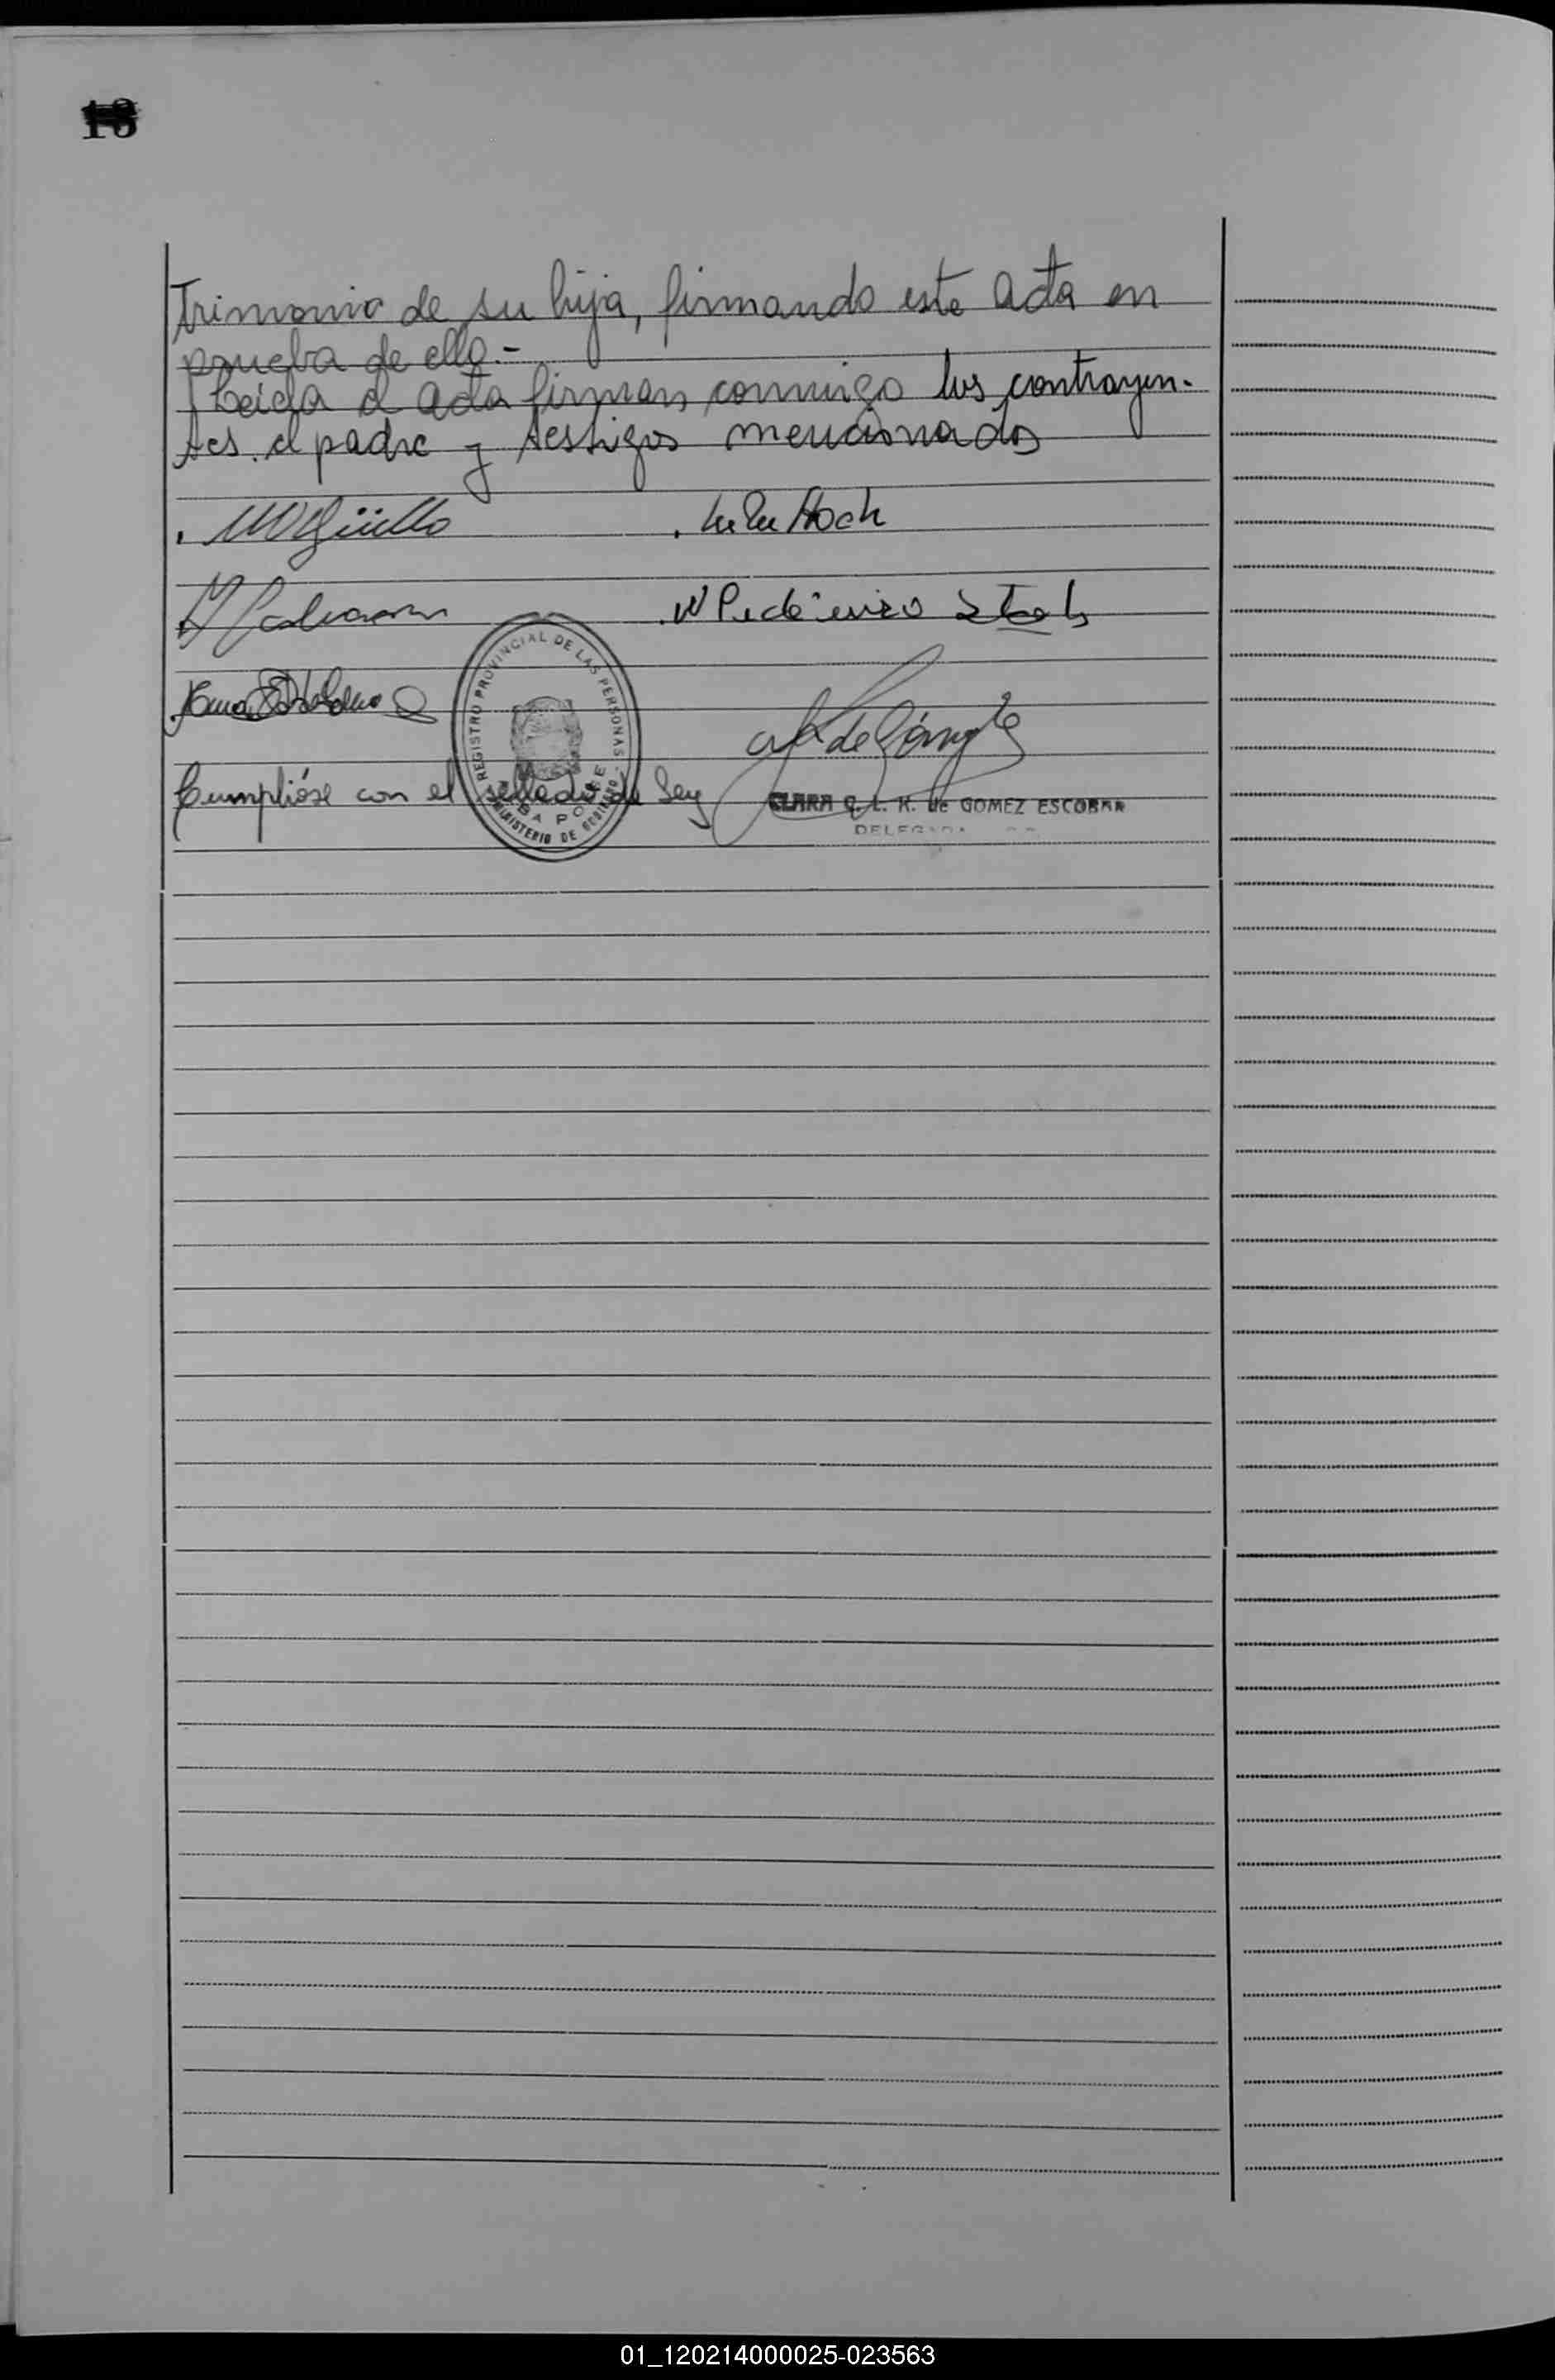 18
trimonio de su hija, firmando este Acta en
prueba de ello.-
Leida el Acta firman conmigo los contrayen-
tes. el padre y testigos mencionados
REGISTRO PROVINCIAL DE LAS PERSONAS
MINISTERIO DE GOBIERNO
ALBA POSSE
Cumplióse con el sellado de Ley
CLARA C. L. K. de GOMEZ ESCOBAR
DELEGADA
01_120214000025-023563